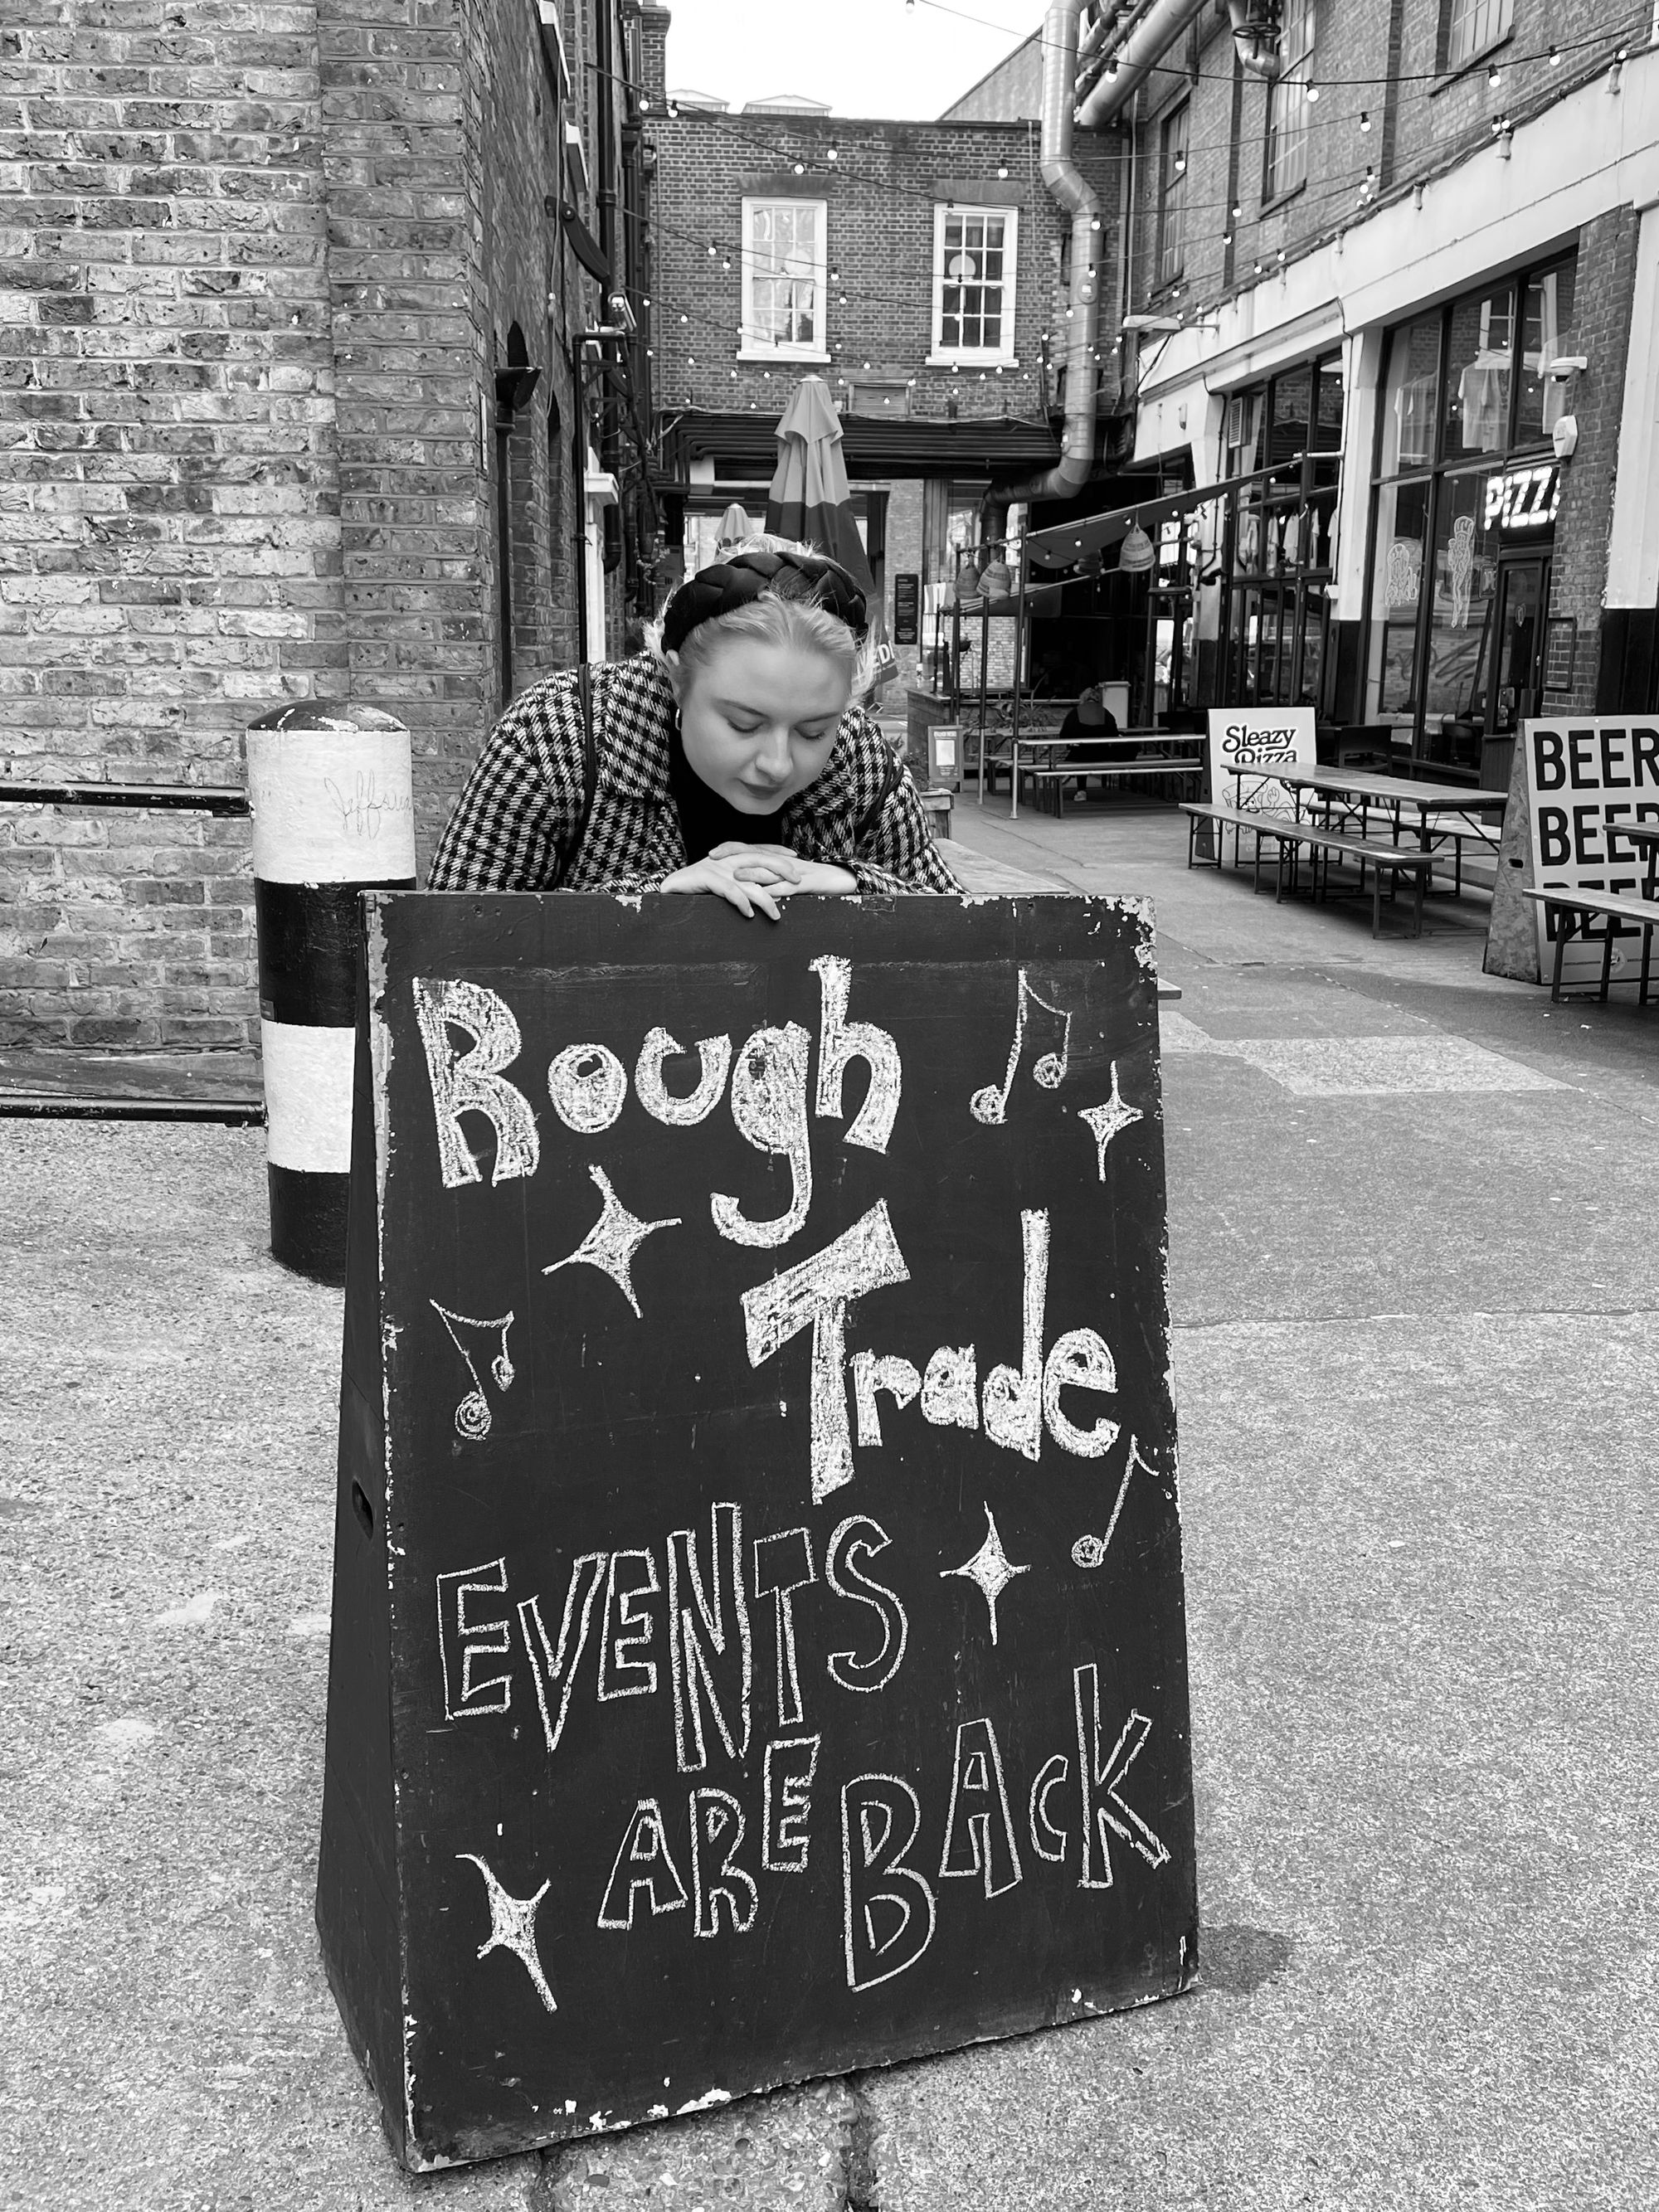 PIZZ
Sleazy
Pizza
BEER
BEER
BEER
Rough
Trade
EVENTS
ARE BACK